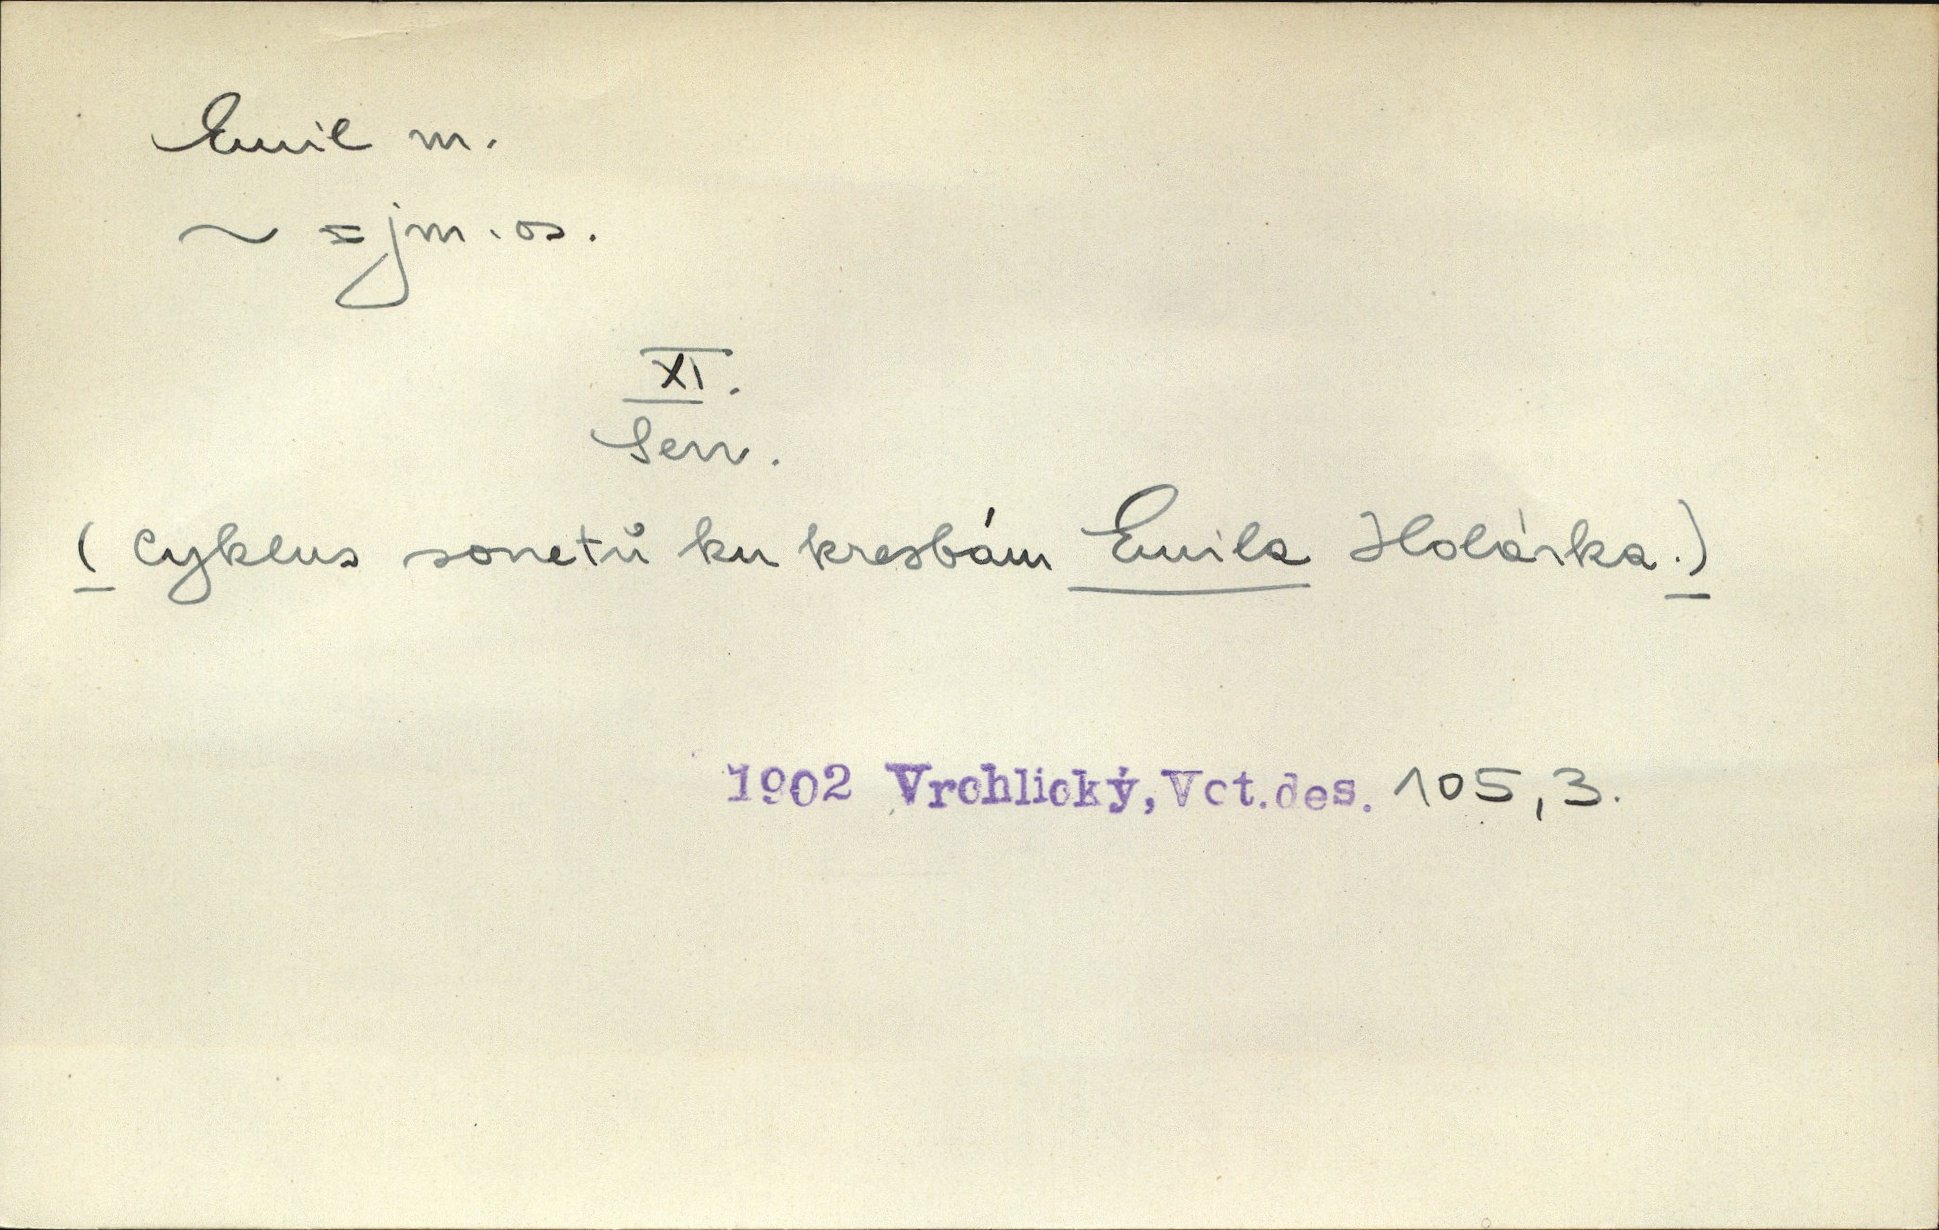 Emil m.
~ = jm. os.
XI.
Sen.
(Cyklus sonetů ku kresbám Emila Holárka.)
1902 Vrchlický, Vct.des. 105,3.